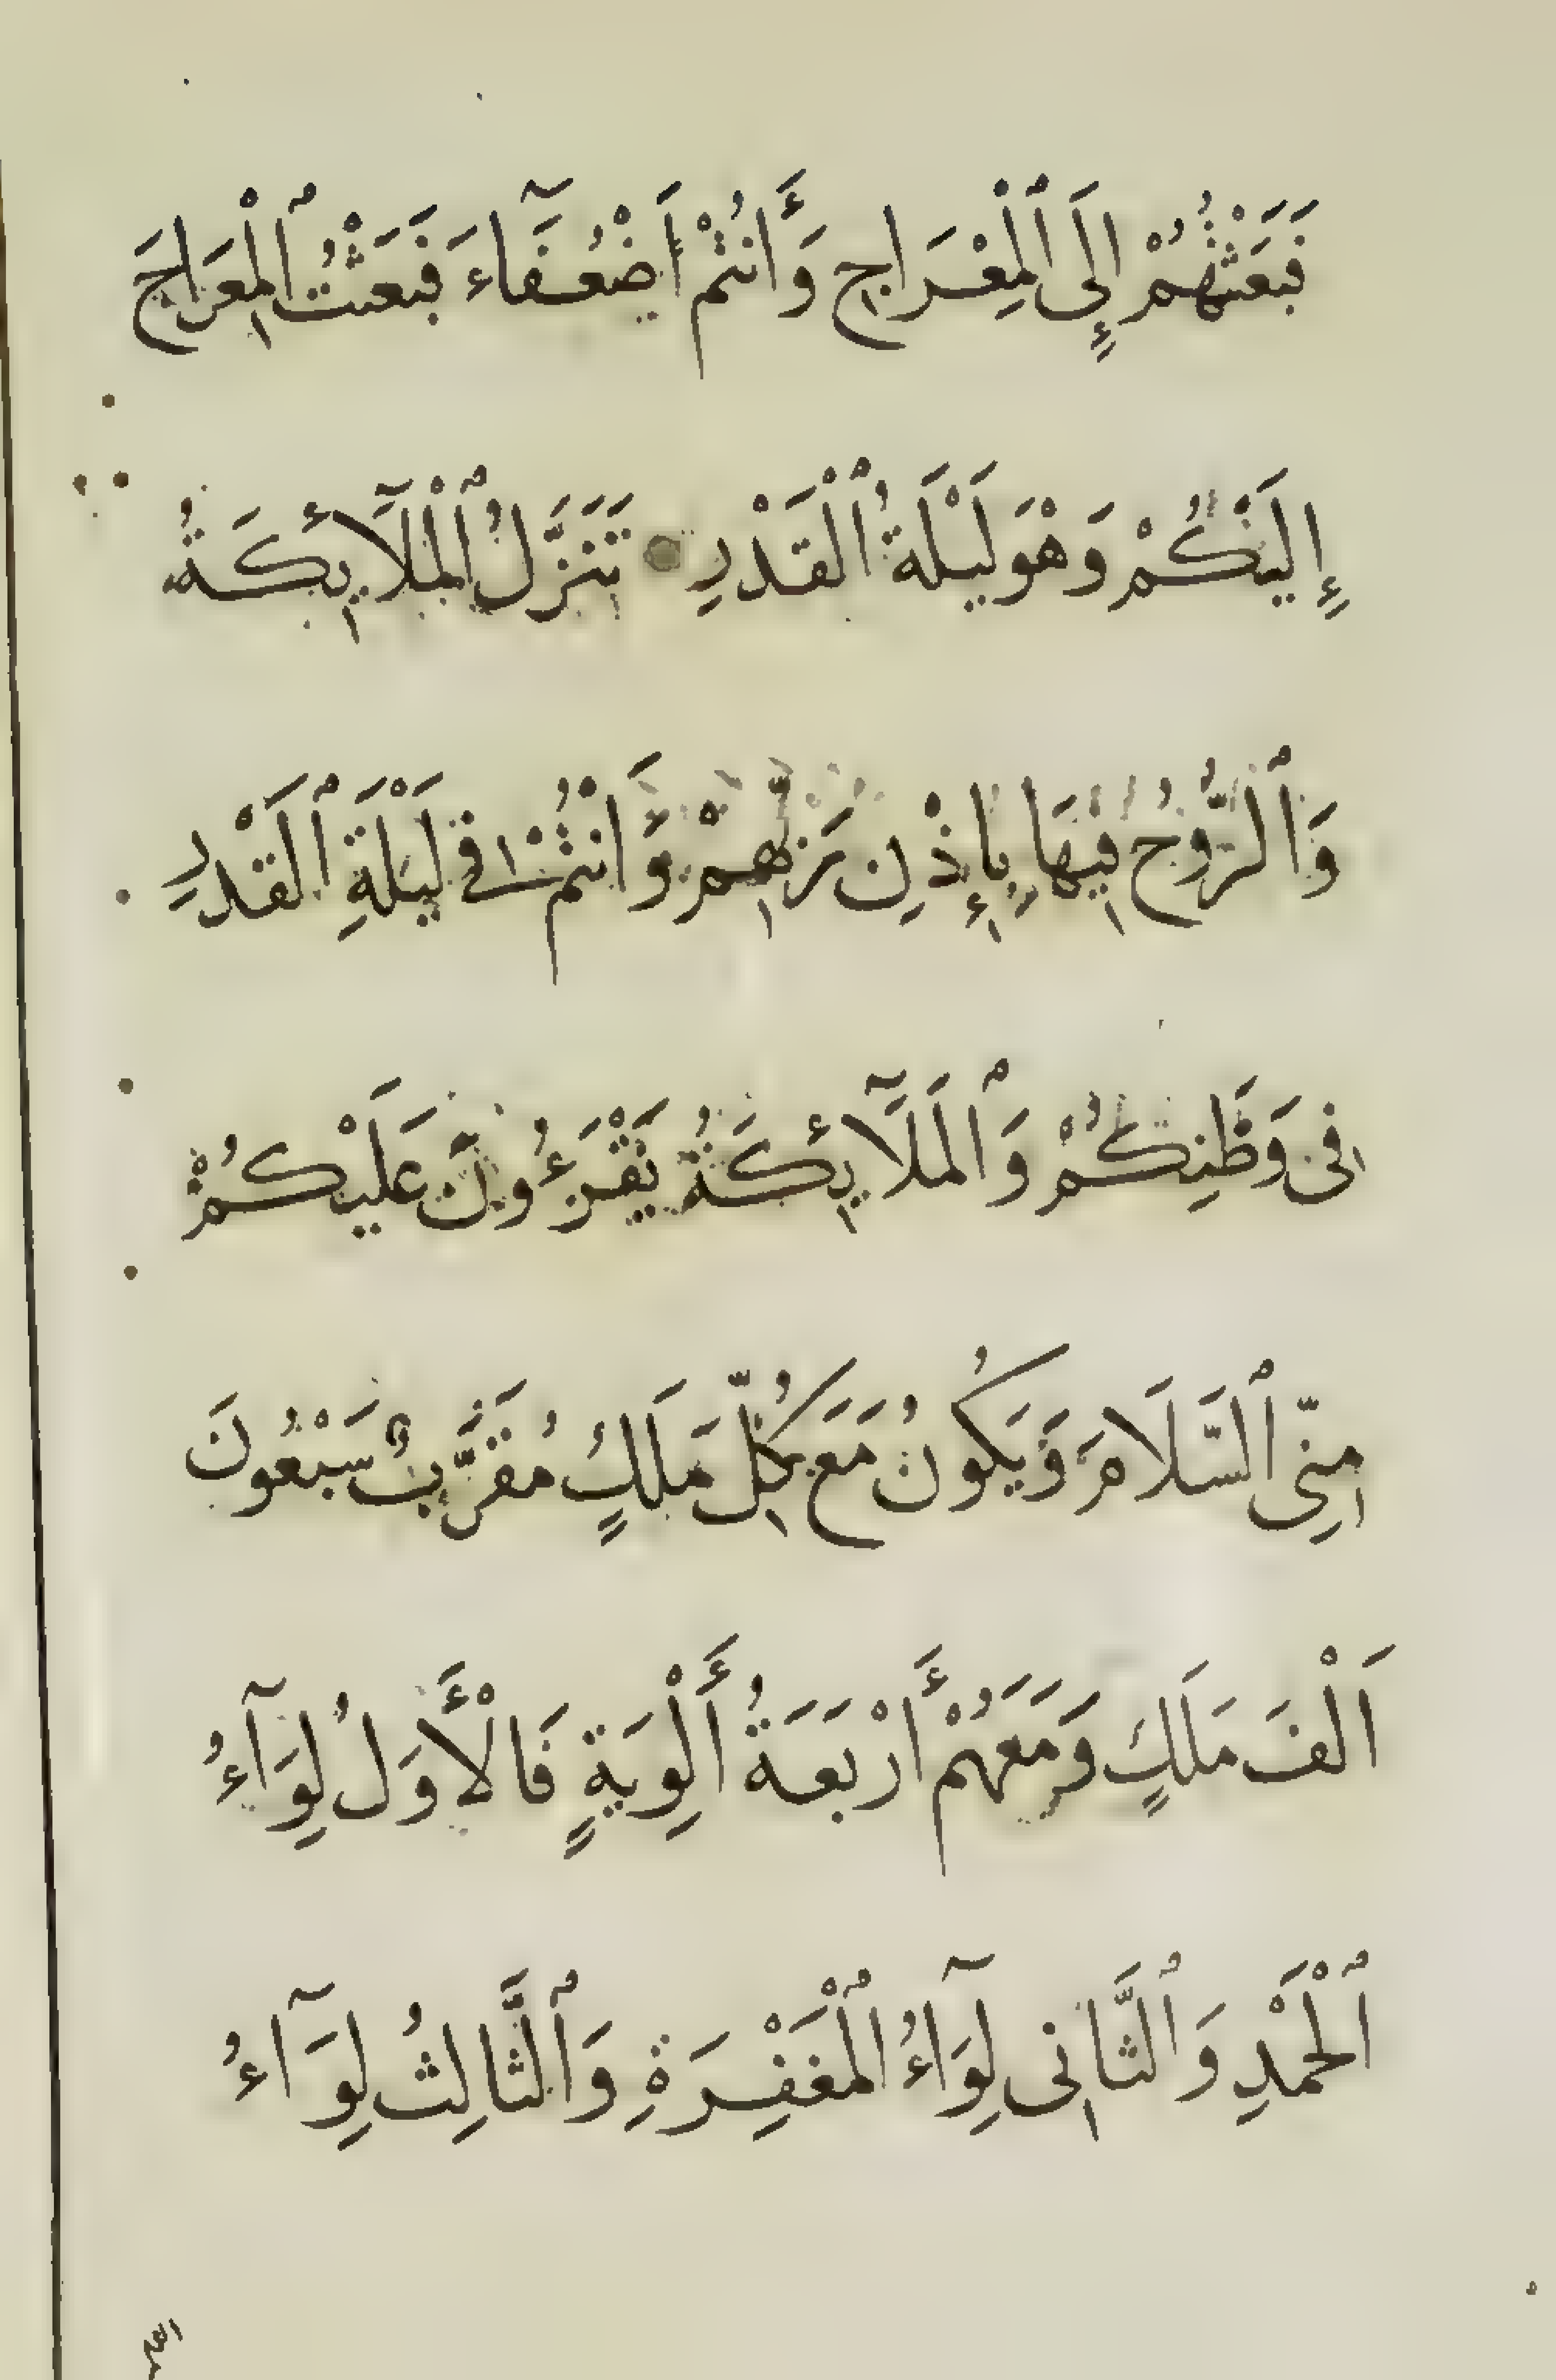 فَبَعَثْتُهُمْ إِلَى ٱلْمِعْرَاجِ وَأَنْتُمْ أَضْعُفَآءَ فَبَعَثْتُ ٱلْمِعْرَاجَ
إِلَيْكُمْ وَهْوَ لَيْلَةُ ٱلْقَدْرِ تَنَزَّلُ ٱلْمَلَآئِكَةُ
وَٱلرُّوحُ فِيهَا بِإِذْنِ رَبِّهِمْ وَأَنْتُمْ فِي لَيْلَةِ ٱلْقَدْرِ
فِى وَطَنِكُمْ وَٱلْمَلَآئِكَةُ يَقْرَءُونَ عَلَيْكُمْ
مِنِّى ٱلسَّلَامَ وَيَكُونُ مَعَ كُلِّ مَلَكٍ مُقَرَّبٍ سَبْعُونَ
اَلْفَ مَلَكٍ وَمَعَهُمْ أَرْبَعَةُ أَلْوِيَةٍ فَالْأَوَّلُ لِوَآءُ
ٱلْحَمْدِ وَٱلثَّانِى لِوَآءُ ٱلْمَغْفِرَةِ وَٱلثَّالِثُ لِوَآءُ